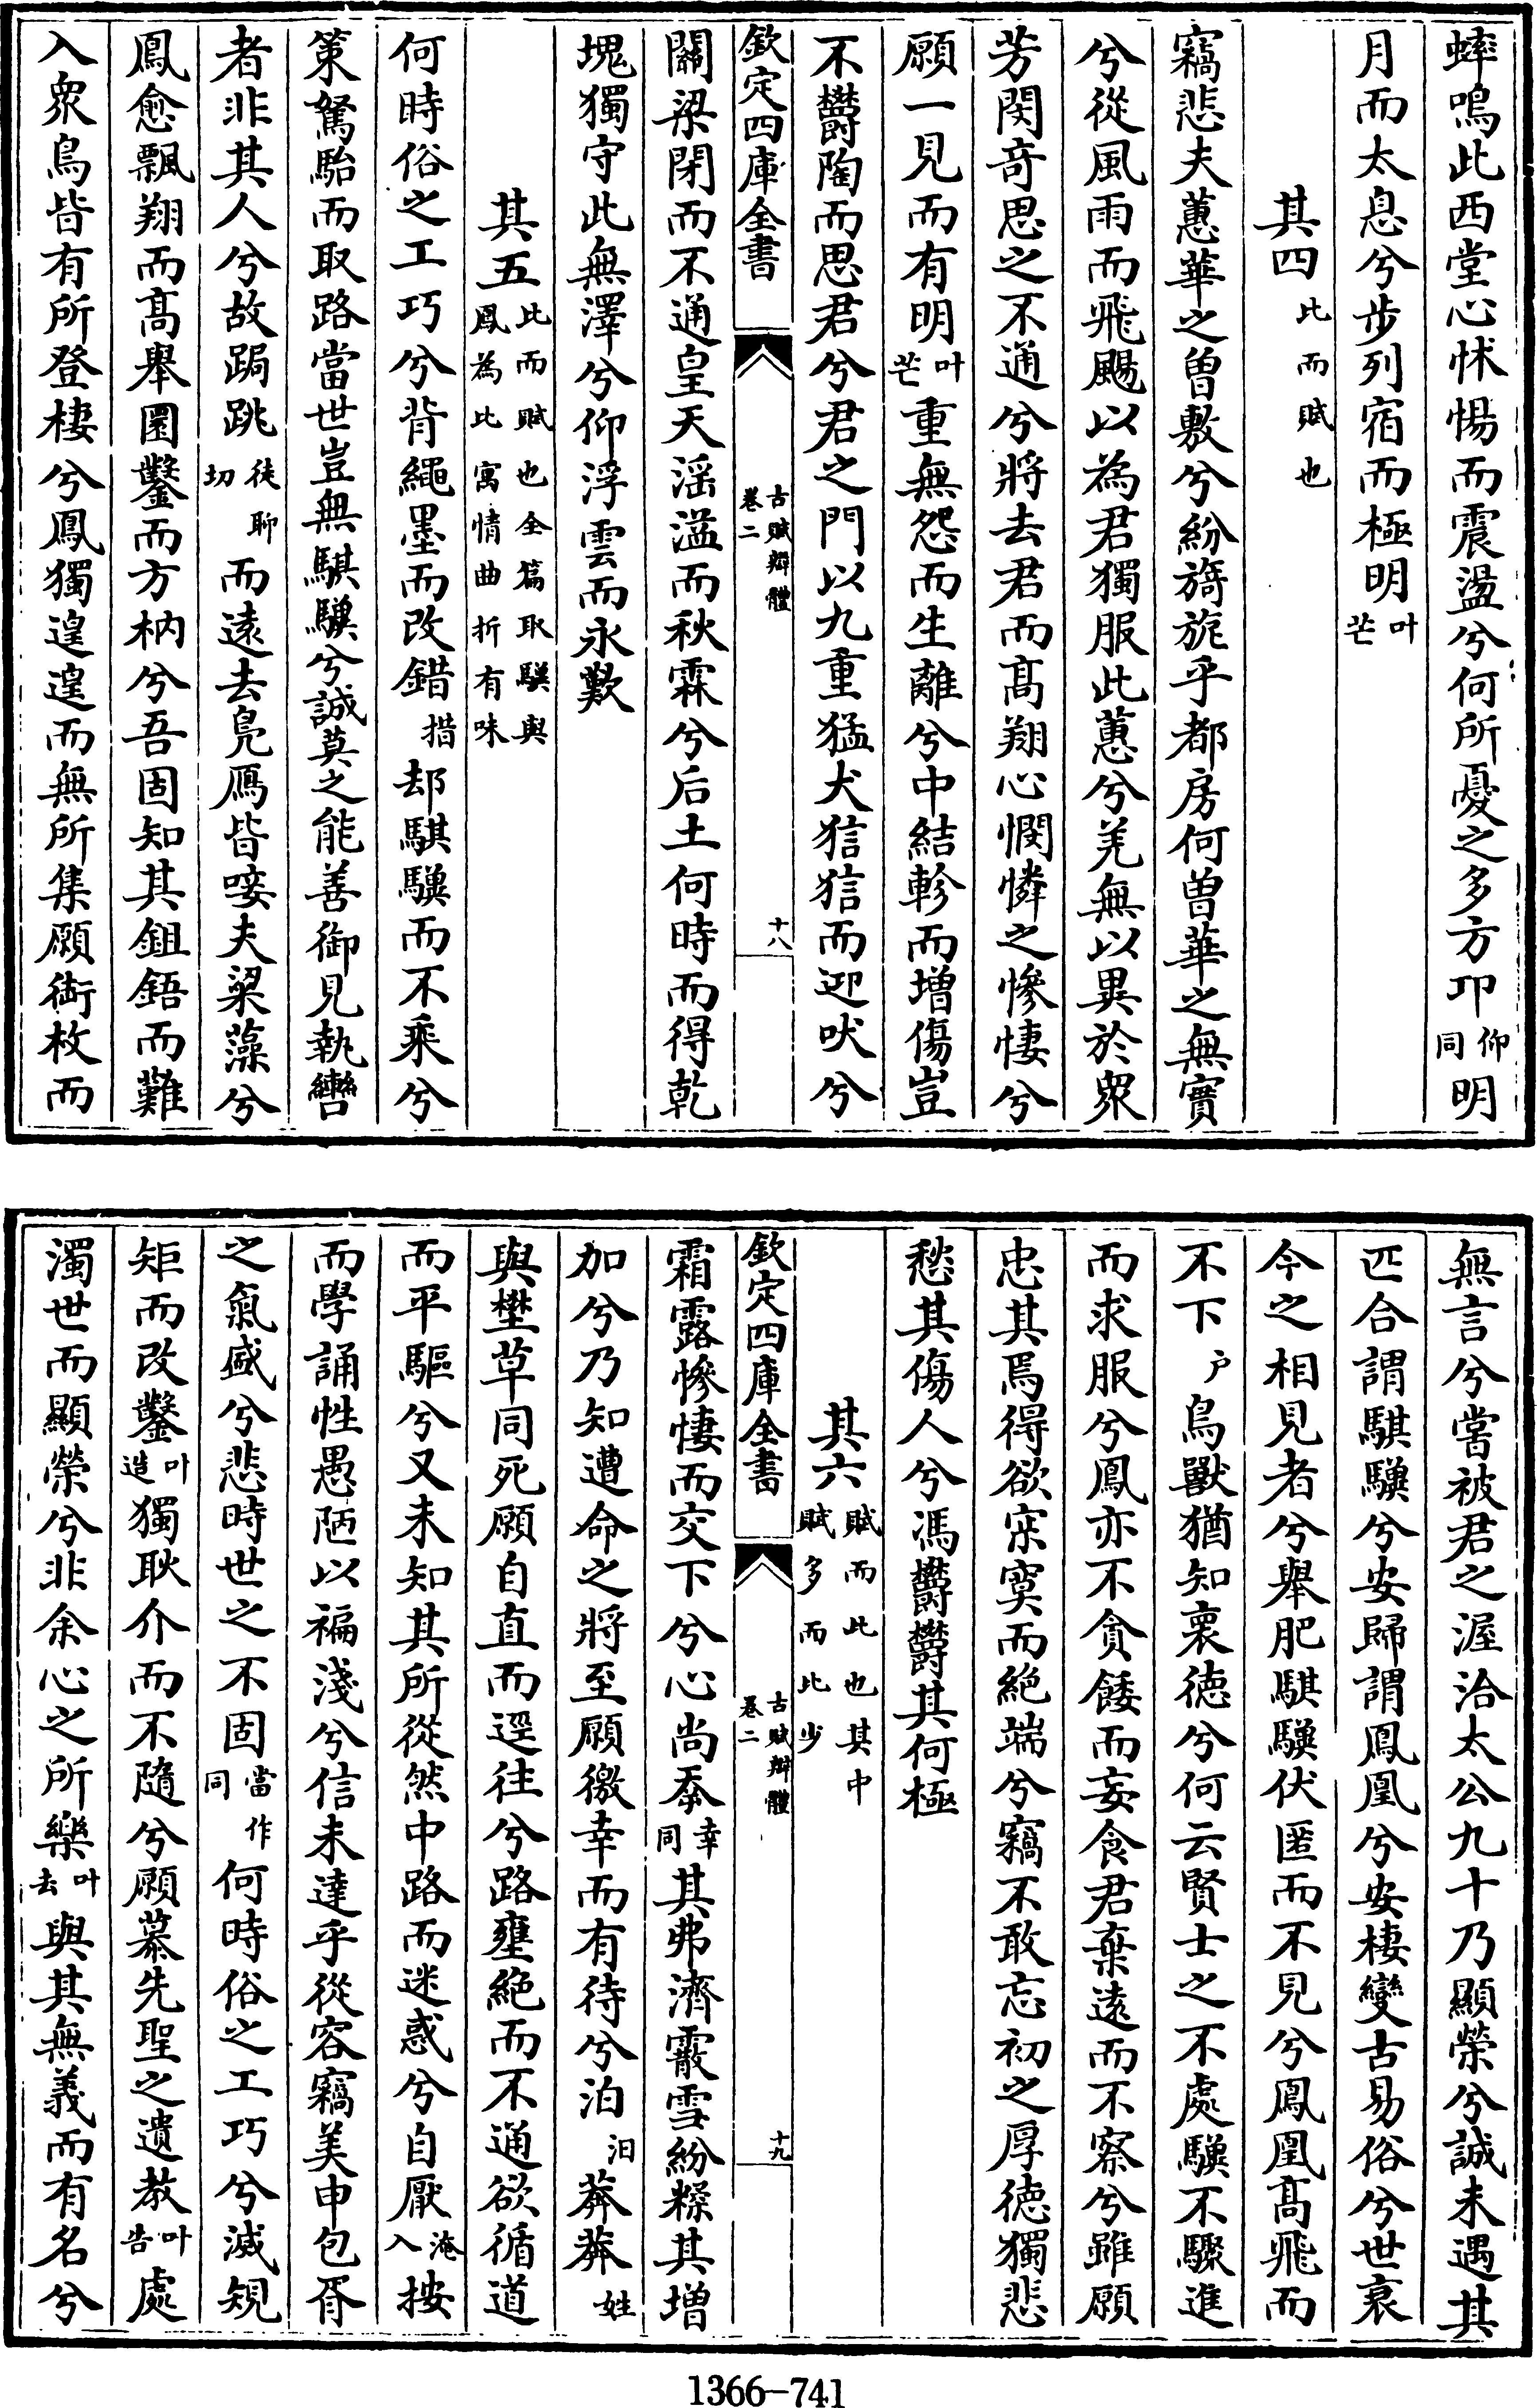 蟀嗚此西堂心怵惕而震盪兮何所憂之多方卬仰同明
月而太息兮步列宿而極明叶芒
其四此而賦也
竊悲夫蕙華之曾敷兮紛旖旎乎都房何曾華之無實
兮從風雨而飛颺以為君獨服此蕙兮羌無以異於眾
芳閔奇思之不通兮將去君而高翔心憫憐之慘悽兮
願一見而有明叶芒重無怨而生離兮中結軫而增傷豈
不鬱陶而思君兮君之門以九重猛犬狺狺而迎吠兮
欽定四庫全書 古賦辯體卷二 十八
關梁閉而不通皇天滛溢而秋霖兮后土何時而得乾
塊獨守此無澤兮仰浮雲而永歎
其五此而賦也全篇取驥與鳳為比寓情曲折有味
何時俗之工巧兮背繩墨而改錯措却騏驥而不乘兮
策駑駘而取路當世豈無騏驥兮誠莫之能善御見執轡
者非其人兮故跼跳徒聊切而遠去鳧鴈皆唼夫粱藻兮
鳳愈飄翔而高舉圜鑿而方枘兮吾固知其鉏鋙而難
入眾鳥皆有所登棲兮鳳獨遑遑而無所集願銜枚而
無言兮嘗被君之渥洽太公九十乃顯榮兮誠未遇其
匹合謂騏驥兮安歸謂鳳凰兮安棲變古易俗兮世衰
今之相見者兮舉肥騏驥伏匿而不見兮鳳凰高飛而
不下户鳥獸猶知褱德兮何云賢士之不處驥不驟進
而求服兮鳳亦不貪餧而妄食君棄遠而不察兮雖願
忠其焉得欲寂寞而絕端兮竊不敢忘初之厚德獨悲
愁其傷人兮馮鬱鬱其何極
其六賦而比也其中賦多而比少
欽定四庫全書 古賦辯體卷二 十九
霜露慘悽而交下兮心尚㚔幸同其弗濟霰雪紛糅其增
加兮乃知遭命之將至願徼幸而有待兮泊汩莽莽姓
與壄草同死願自直而逕往兮路壅絕而不通欲循道
而平驅兮又未知其所從然中路而迷惑兮自厭淹入按
而學誦性愚陋以褊淺兮信未達乎從容竊美申包胥
之氣盛兮悲時世之不固當作同何時俗之工巧兮滅規
矩而改鑿叶造獨耿介而不隨兮願慕先聖之遺教叶告處
濁世而顯榮兮非余心之所樂叶去與其無義而有名兮
1366-741